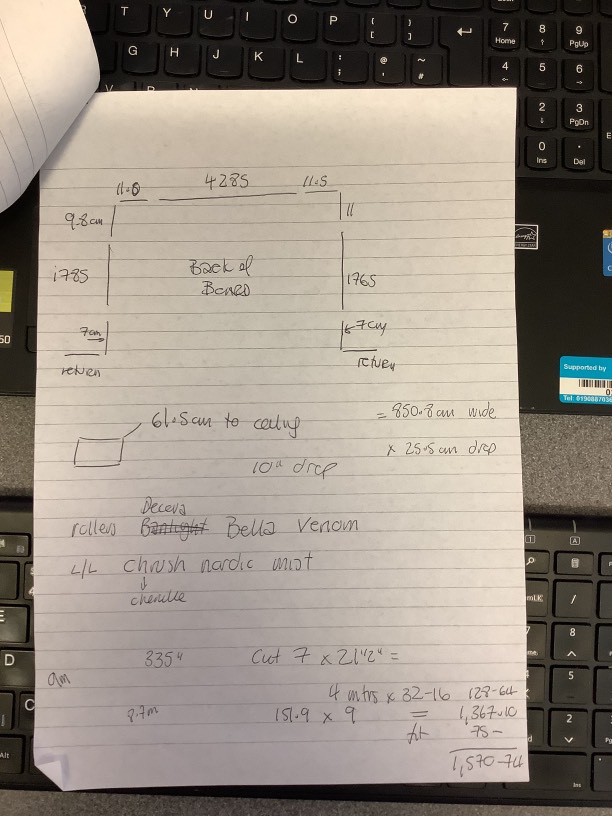 T Y U I O P { [ } ]
7 Home 8 9 PgUp
G H J K L : ; @ ' ~ #
4 5 6
2 3 PgDn
0 Ins . Del
11.6 4285 11.5
9.8cm 11
1785 Back of 1765
7cm 7cm
return return
50
Supported by
61.5cm to ceiling = 850.8cm wide
x 25.5cm drop
10" drop
Decora
rollers Banlight Bella Venom
L/L Chrush nordic mist
chenille
335" Cut 7 x 21"2" =
9m
4 mtrs x 32-16 128-64
8.7m 151.9 x 9 = 1,367.10
fit 75-
1,570-74
E
D
C
Alt
A
mLK /
7 8
5
2
Ins